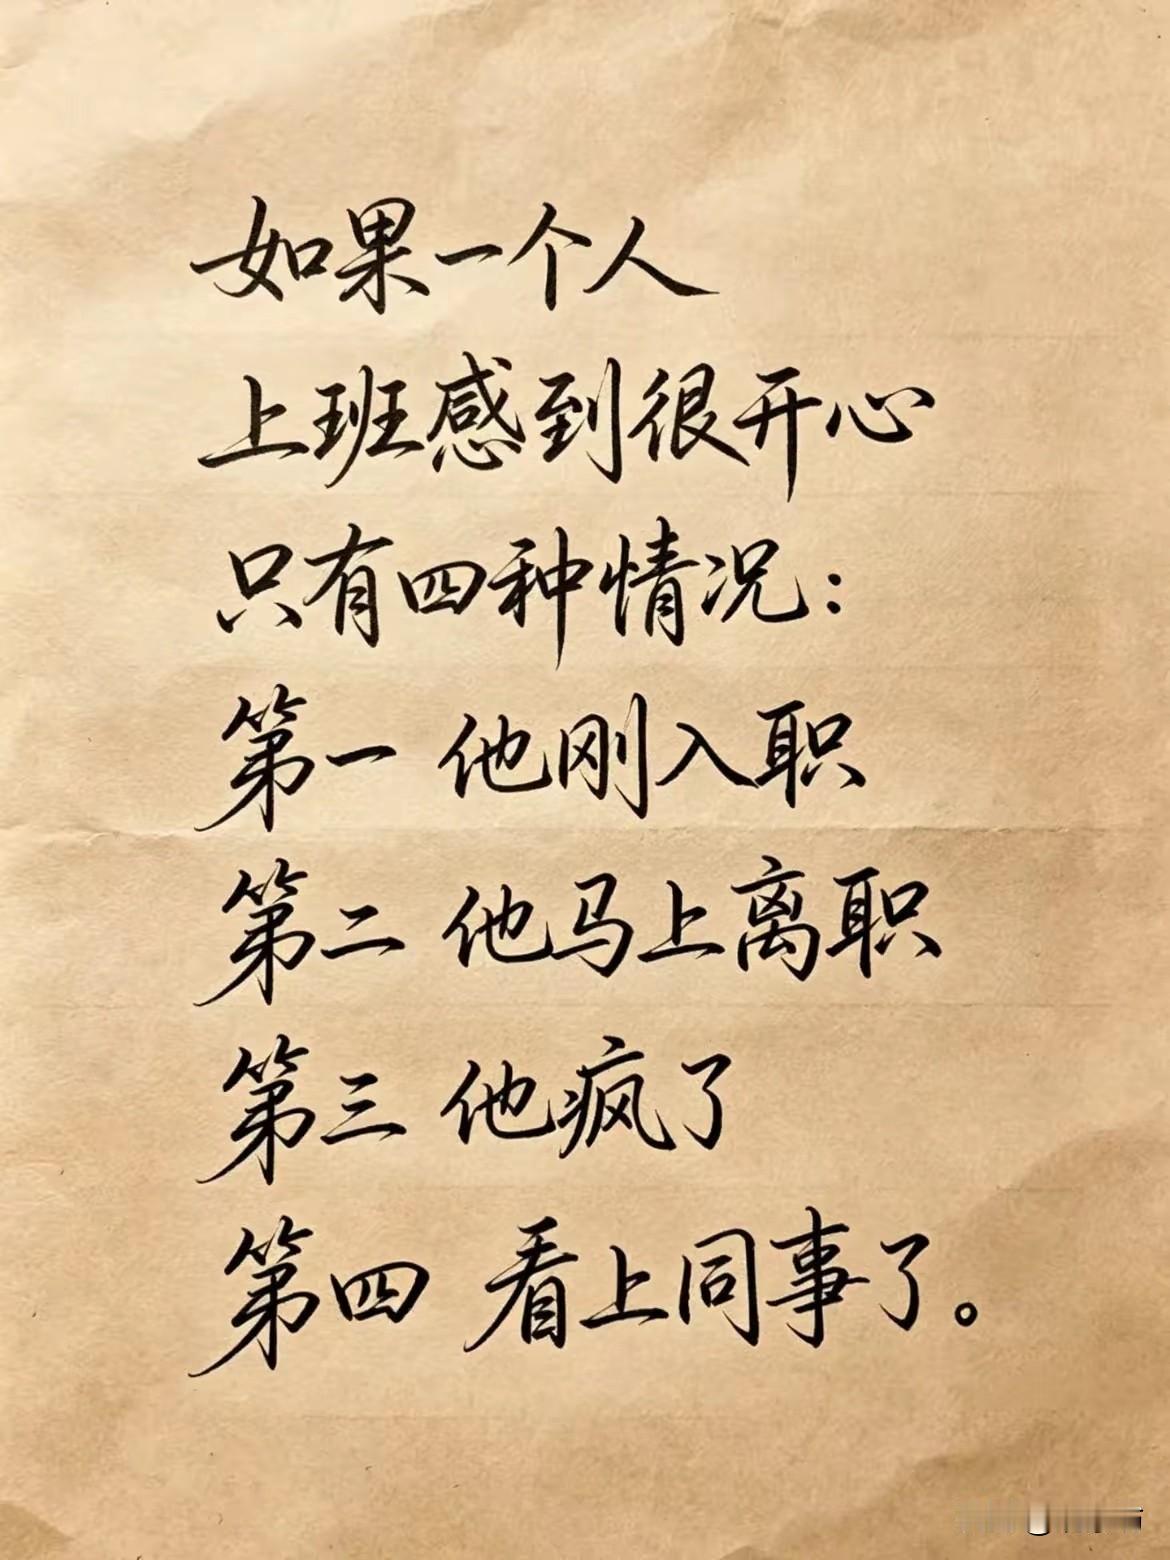 如果一个人
上班感到很开心
只有四种情况：
第一 他刚入职
第二 他马上离职
第三 他疯了
第四 看上同事了。